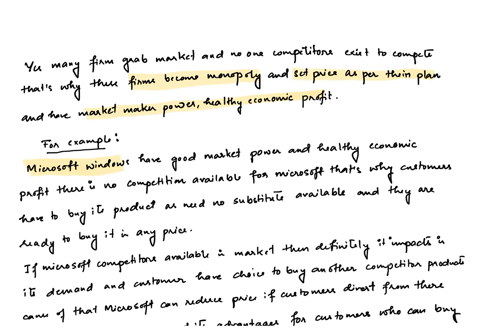 Yes many firm grab market and no one competitors exist to compete
that's why these firms become monopoly and set price as per their plan
and have market maker power, healthy economic profit.
For example:
Microsoft windows have good market power and healthy economic
profit there is no competition available for microsoft that's why customers
have to buy its product as need no substitute available and they are
ready to buy it in any price.
If microsoft competitors available in market then definitely it impacts in
its demand and customer have choice to buy another competitor products
case of that Microsoft can reduce price if customers divert from there
its advantages for customers who can buy